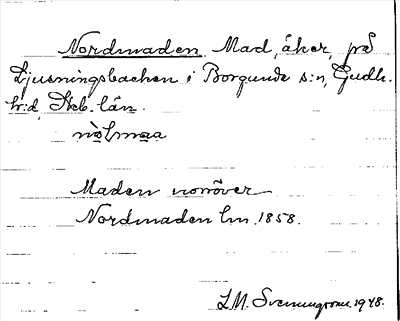 Nordmaden. Mad, åker, på
Ljusningsbacken i Borgunda s:n, Gudh.
h:d, Skb. län.
Maden norröver
Nordmaden lm. 1858.
L.M. Svenungsson. 1948.